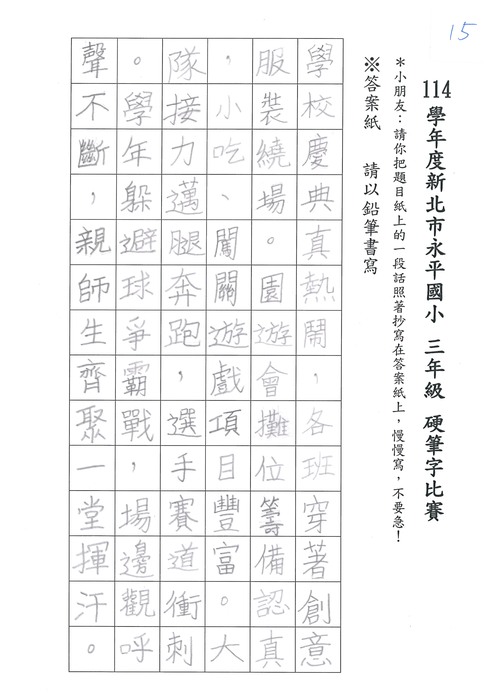 15
114學年度新北市永平國小 三年級 硬筆字比賽
＊小朋友：請你把題目紙上的一段話照著抄寫在答案紙上，慢慢寫，不要急！
※答案紙 請以鉛筆書寫
學校慶典真熱鬧，各班穿著創意
服裝繞場。園遊會攤位籌備認真
，小吃、闖關遊戲項目豐富。大
隊接力邁腿奔跑，選手賽道衝刺
。學年躲避球爭霸戰，場邊觀呼
聲不斷，親師生齊聚一堂揮汗。